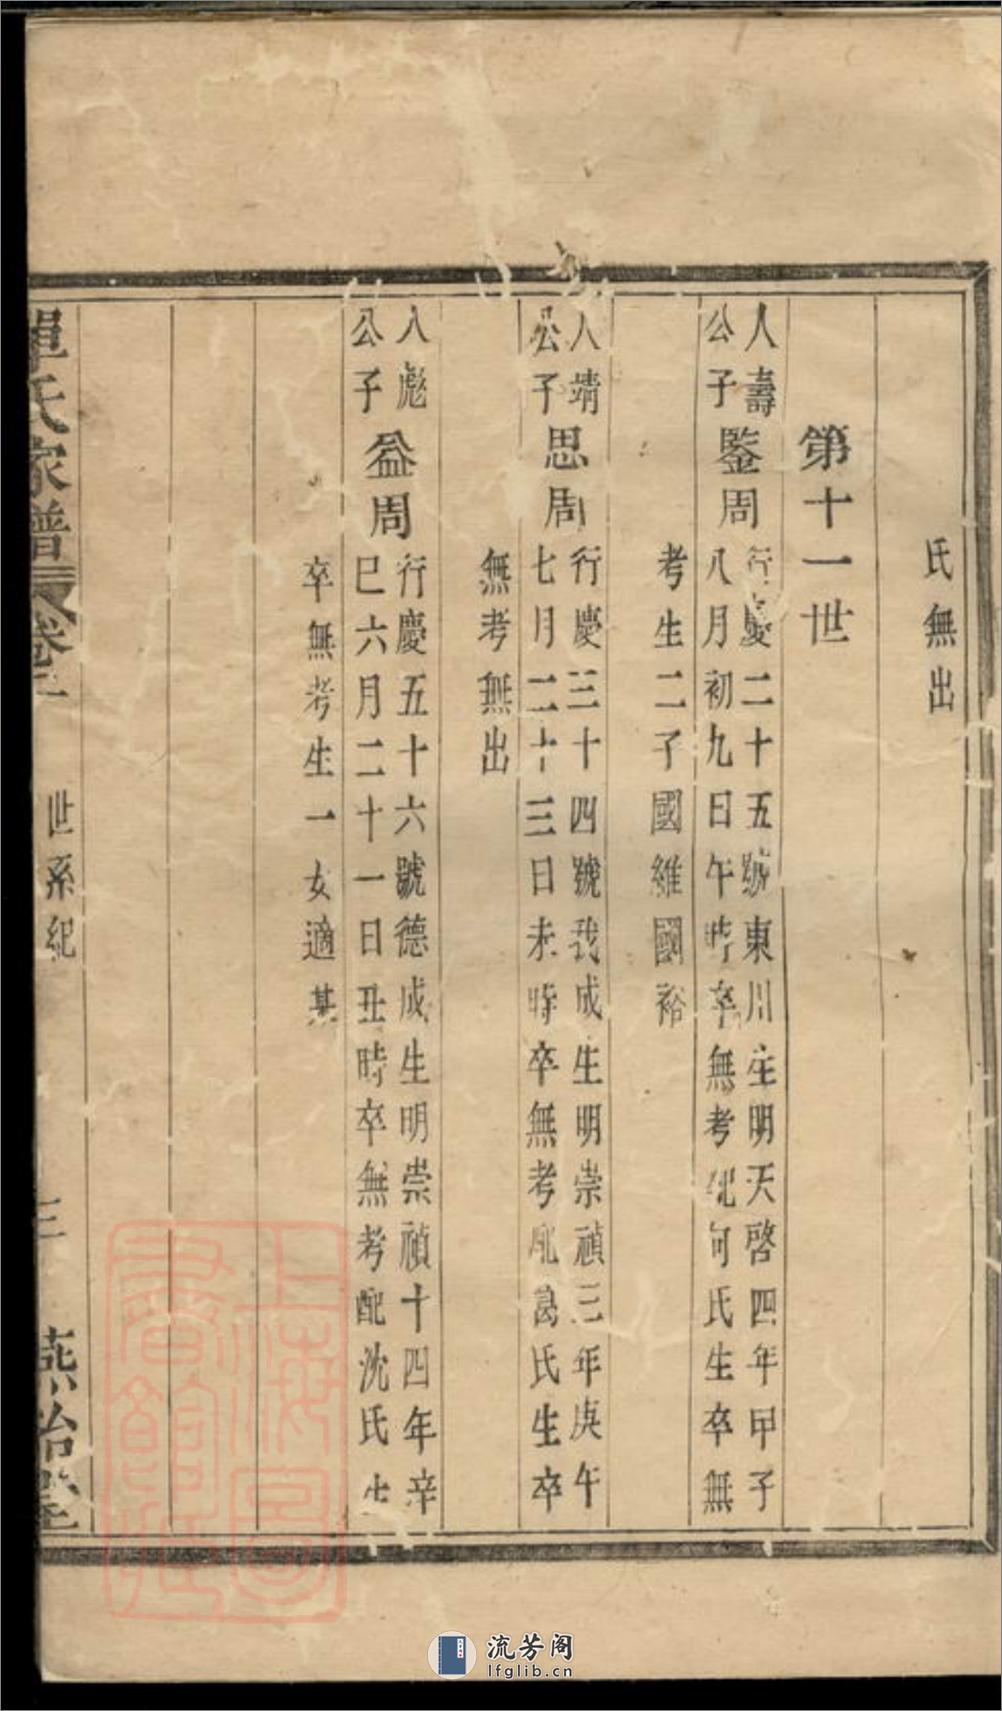 氏無出
第十一世
人壽
公子
鑒周
行慶二十五號東川生明天啓四年甲子
八月初九日午時卒無考配何氏生卒無
考生二子國維國裕
人靖
公子
思周
行慶三十四號我成生明崇禎三年庚午
七月二十三日未時卒無考配葛氏生卒
無考無出
人彪
公子
益周
行慶五十六號德成生明崇禎十四年辛
巳六月二十一日丑時卒無考配沈氏生
卒無考生一女適某
氏家譜
卷
世系紀
三
燕治堂
上海圖
書館藏
流芳阁
lfglib.cn